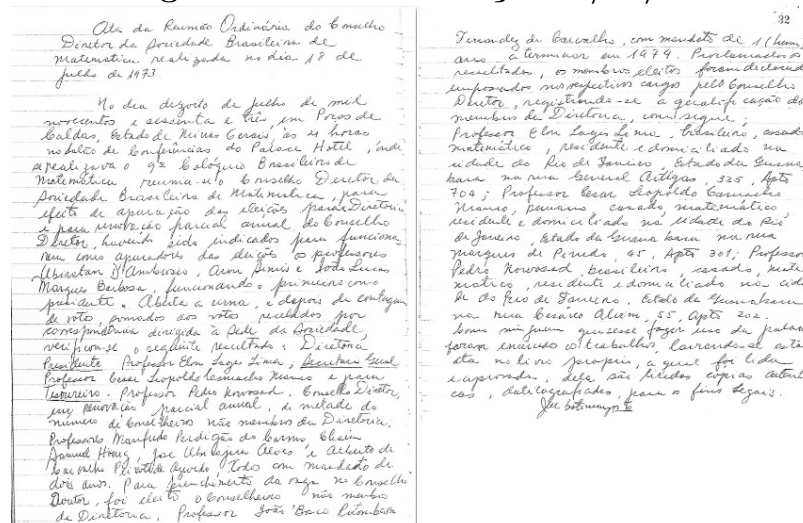 Ata da Reunião Ordinária do Conselho
Diretor da Sociedade Brasileira de
Matemática realizada no dia 18 de
julho de 1973
No dia dezoito de julho de mil
novecentos e sessenta e três, em Poços de
Caldas, Estado de Minas Gerais, às 21 horas
no salão de Conferências do Palace Hotel, onde
se realizava o 9º Colóquio Brasileiro de
Matemática reuniu-se o Conselho Diretor da
Sociedade Brasileira de Matemática, para
efeito de apuração das eleições para Diretoria
e para renovação parcial anual do Conselho
Diretor, havendo sido indicados para funciona
rem como apuradores das eleições os professores
Ubiratan D'Ambrosio, Aron Simis e João Lucas
Marques Barbosa, funcionando o primeiro como
presidente. Aberta a urna, e depois de contagem
de voto, somados aos votos recebidos por
correspondência dirigida à sede da Sociedade,
verificou-se o seguinte resultado: Diretoria
Presidente, Professor Elon Lages Lima; Secretário Geral
Professor Cesar Leopoldo Camacho Manco e para
Tesoureiro. Professor Pedro Nowosad. Conselho Diretor,
em renovação parcial anual, de metade do
número de Conselheiros não membros da Diretoria.
Professores Manfredo Perdigão do Carmo, Chaim
Samuel Hönig, José Ubirajara Alves e Alberto de
Carvalho Peixoto de Azevedo, todos com mandato de
dois anos. Para preenchimento da vaga no Conselho
Diretor, foi eleito o Conselheiro não membro
da Diretoria, Professor João Bosco Pitombeira
32
Fernandez de Carvalho, com mandato de 1 (hum)
ano a terminar em 1974. Proclamados os
resultados, os membros eleitos foram declarados
empossados nos respectivos cargos pelo Conselho
Diretor, registrando-se a qualificação dos
membros da Diretoria, como segue;
Professor Elon Lages Lima, brasileiro, casado
matemático, residente e domiciliado na
cidade do Rio de Janeiro, Estado da Guana
bara na rua General Artigas, 325, Apto
704; Professor Cesar Leopoldo Camacho
Manco, peruano casado, matemático
residente e domiciliado na cidade do Rio
de Janeiro, Estado da Guanabara na rua
Marques de Pinedo, 45, Apto 301; Professor
Pedro Nowosad, brasileiro, casado, mate
mático, residente e domiciliado na cida
de do Rio de Janeiro, Estado da Guanabara
na rua Cesário Alvim, 55, Apto 202.
Como ninguém quisesse fazer uso da palavra
foram encerrados os trabalhos, lavrando-se esta
ata no livro próprio, a qual foi lida
e aprovada, dela são tiradas cópias autenti
cas, datilografadas, para os fins legais.